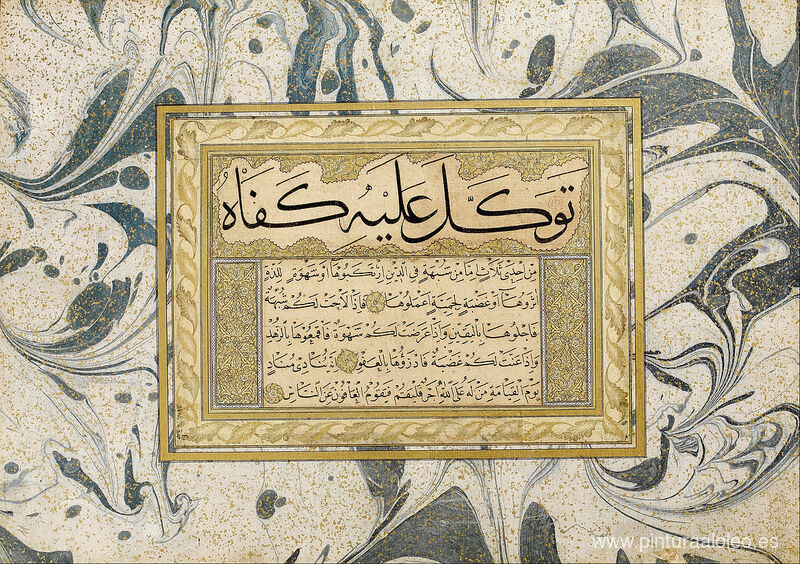 تَوَكَّلَ عَلَيْهِ كَفَاهُ
مِنْ اِحْدَى ثَلَاثٍ اِمَّا مِنْ شُبْهَةٍ فِى الدِّينِ اِرْتَكَبُوهَا اَوْ شَهْوَةٍ لِلَذَّةٍ
اٰثَرُوهَا اَوْ غَضْبَةٍ لِحَمِيَّةٍ اَعْمَلُوهَا فَاِذَا لَاحَتْ لَكُمْ شُبْهَةٌ
فَاجْلُوهَا بِالْيَقِينِ وَاِذَا عَرَضَتْ لَكُمْ شَهْوَةٌ فَاقْمَعُوهَا بِالزُّهْدِ
وَاِذَا عَنَّتْ لَكُمْ غَضْبَةٌ فَادْرَؤُهَا بِالْعَفْوِ اِنَّهُ يُنَادِى مُنَادٍ
يَوْمَ الْقِيَامَةِ مَنْ لَهُ عَلَى اللّٰهِ اَجْرٌ فَلْيَقُمْ فَيَقُومُ الْعَافُونَ عَنِ النَّاسِ
www.pinturaaloleo.es